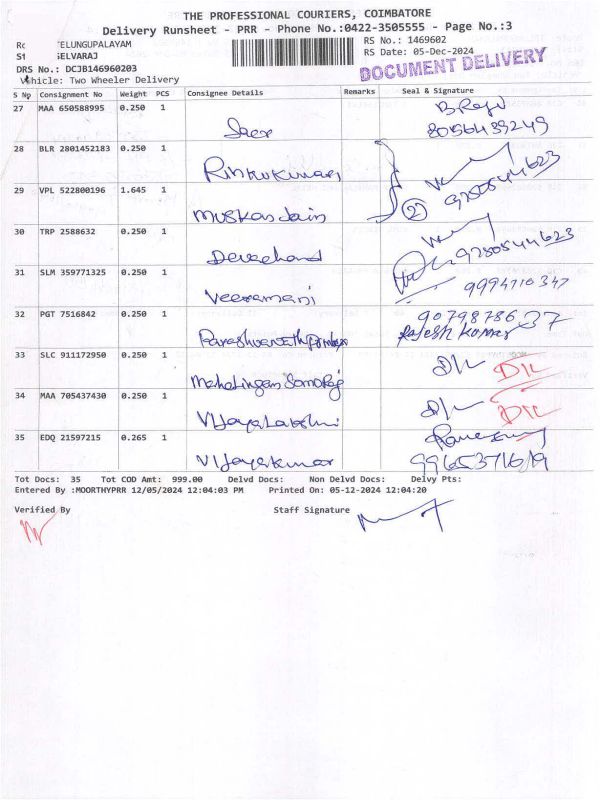 THE PROFESSIONAL COURIERS, COIMBATORE
Delivery Runsheet - PRR - Phone No.:0422-3505555 - Page No.:3
ELUNGUPALAYAM
RS No.: 1469602
ELVARAJ
RS Date: 05-Dec-2024
DRS No.: DCJB146960203
DOCUMENT DELIVERY
Vehicle: Two Wheeler Delivery
S No Consignment No Weight PCS Consignee Details Remarks Seal & Signature
27 MAA 650588995 0.250 1
28 BLR 2801452183 0.250 1 Rinkukumar
29 VPL 522800196 1.645 1 Muskan Jain 2 9250544623
30 TRP 2588632 0.250 1 Devachand 9250544623
31 SLM 359771325 0.250 1 Veeramani 9994710347
32 PGT 7516842 0.250 1 9079878637
Rajesh Kumar
33 SLC 911172950 0.250 1 D/L D/L
34 MAA 705437430 0.250 1 Vijayalakshmi D/L D/L
35 EDQ 21597215 0.265 1 Vijayakumar
Tot Docs: 35 Tot COD Amt: 999.00 Delvd Docs: Non Delvd Docs: Delvy Pts:
Entered By :MOORTHYPRR 12/05/2024 12:04:03 PM Printed On: 05-12-2024 12:04:20
Verified By Staff Signature